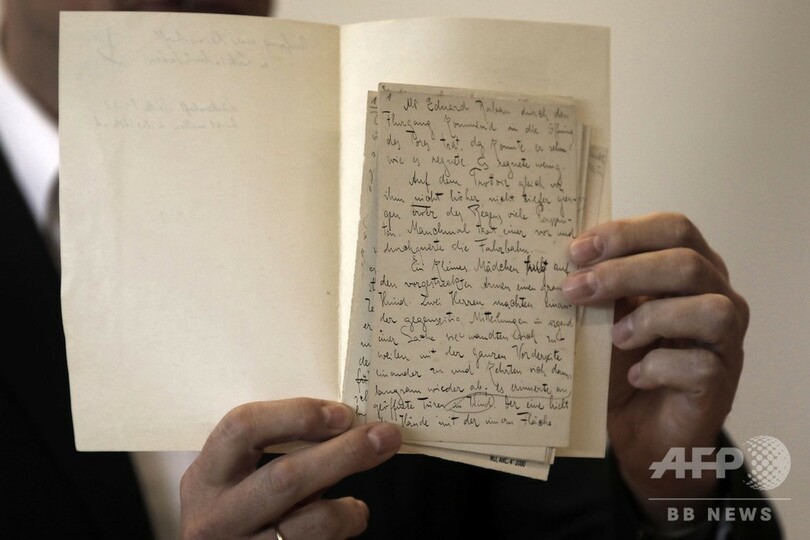 1 Als Eduard Raban durch den
Flurgang kommend in die Öffnung
des Tores trat, da konnte er sehn
wie es regnete. Es regnete wenig.
Auf dem Trotoir gleich vor
ihm nicht höher nicht tiefer gien-
gen trotz des Regens viele Passan-
ten. Manchmal trat einer vor und
durchquerte die Fahrbahn.
Ein kleines Mädchen trug auf
den vorgestreckten Armen einen grauen
Hund. Zwei Herren machten einan-
der gegenseitig Mitteilungen in irgend
einer Sache sie wandten sich zu-
weilen mit der ganzen Vorderseite
einander zu und kehrten sich dann
langsam wieder ab. Es erinnerte an
geöffnete Türen im Wind. Der eine hielt
Hände mit der innern Fläche
AFP
BB NEWS